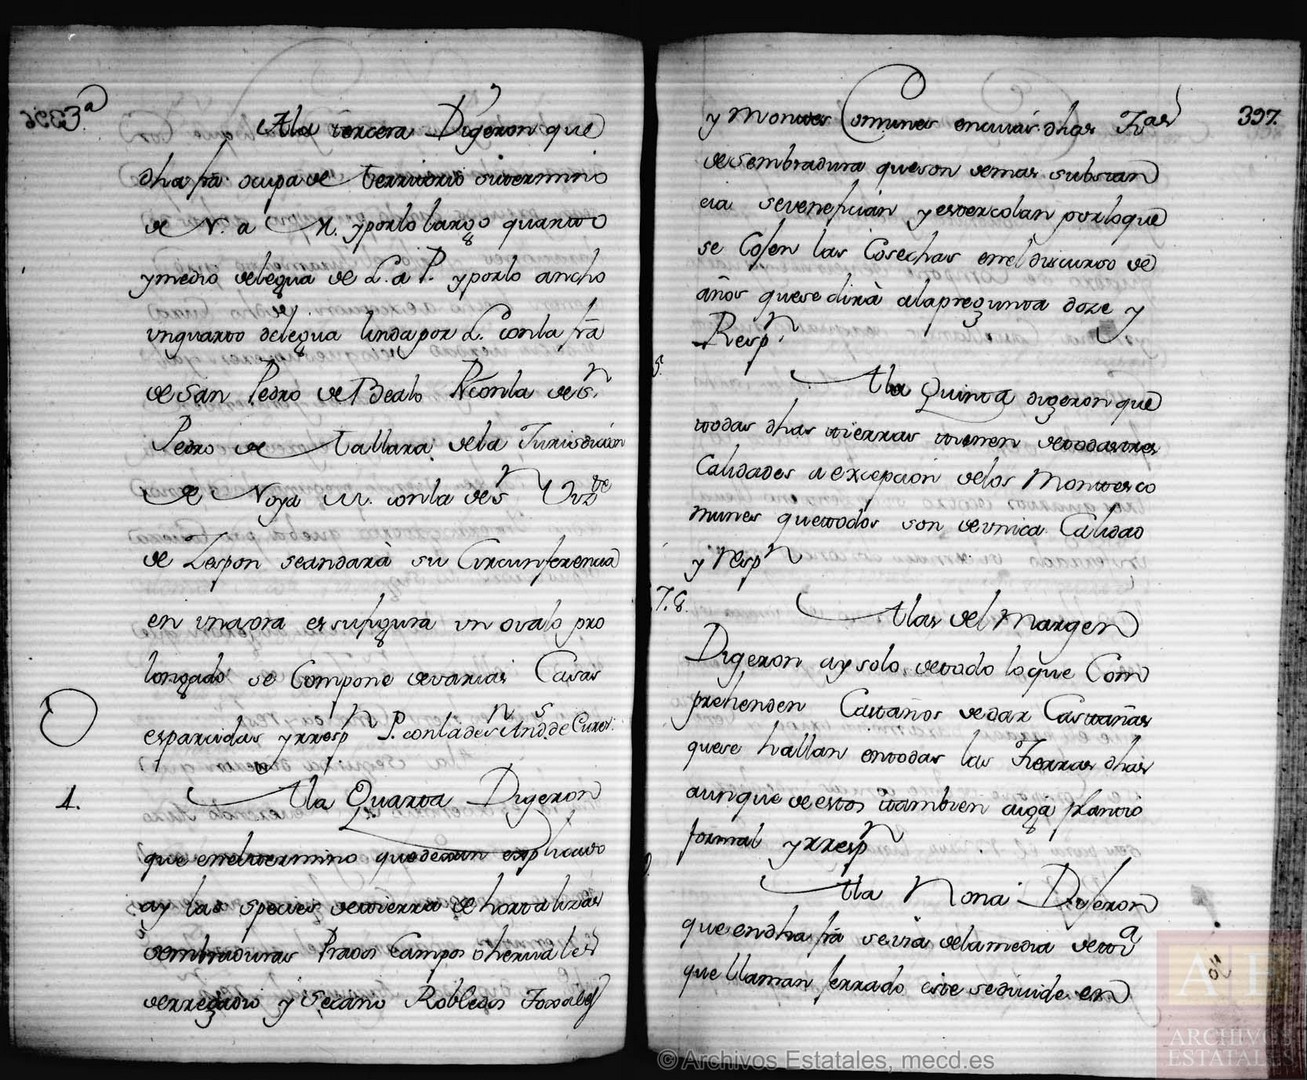 3.ª
A la tercera Digeron que
dha frã ocupa de territorio su termino
de N. a M. y por lo largo quarto
y medio de legua de L. a P. y por lo ancho
un quarto de legua linda por L. con la frã
de San Pedro de Bealo N con la de Sn.
Pedro de Tallara de la Jurisdicion
de Noya M. con la de Sn Vizte
de Lespon se andara su Circunferencia
en una ora es su figura un ovalo pro
longado se Compone de varias Casas
esparcidas y rrespn P. con la de Sn Ands. de Cures.
4.
A la Quarta Digeron
que en el termino que dejan explicado
ay las species de tierra de hortalizas
sembraduras Prados Campos herbales
de rregadio y Secano Robledas Toxales
397.
y Montes Comunes en cuias dhas Tras
de sembradura que son de mas substan
cia se venefician y estercolan por lo que
se Cojen las Cosechas en el discurso de
años que se dirà a la pregunta doze y
Respn.
5.
A la Quinta digeron que
todas dhas tierras tienen de todas tres
Calidades a excepcion de los Montes co
munes que todos son de unica Calidad
y Respn
7. 8.
A las del Margen
Digeron ay solo de todo lo que Com
prehenden Castaños de dar Castañas
que se hallan en todas las Tierras dhas
aunque de estos tambien aiga plantio
formal y rrespn
A la Nona Digeron
que en dha frã se usa de la medida de trª
que llaman ferrado este se divide en
© Archivos Estatales, mecd.es
AE
ARCHIVOS
ESTATALES